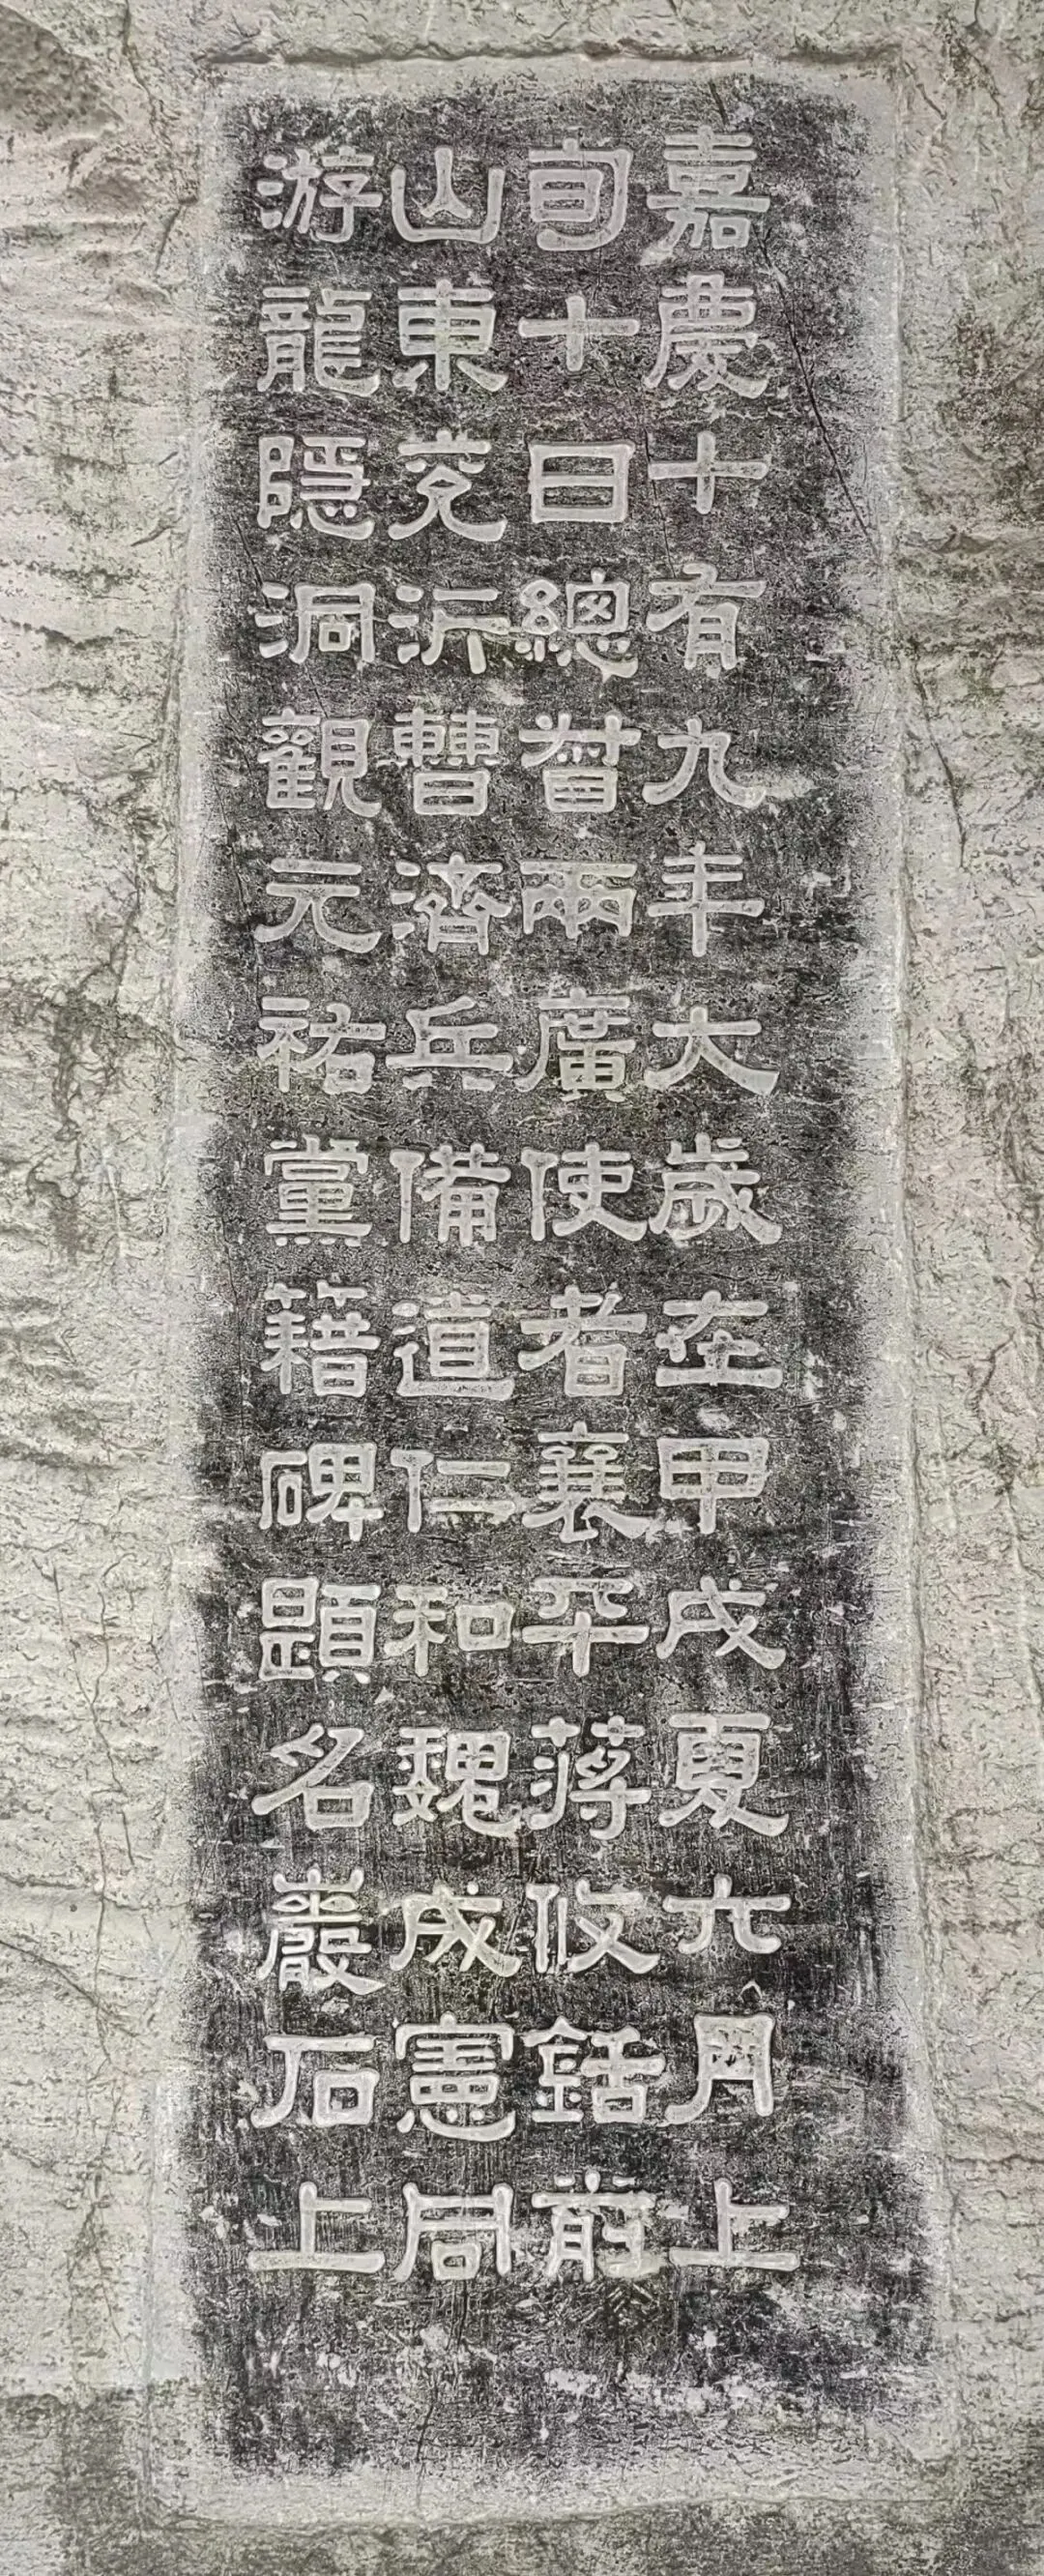 嘉慶十有九年大歲在甲戌夏六月上
旬十日總督兩廣使者襄平蔣攸銛前
山東兗沂曹濟兵備道仁和魏成憲同
游龍隱洞觀元祐黨籍碑題名巖石上